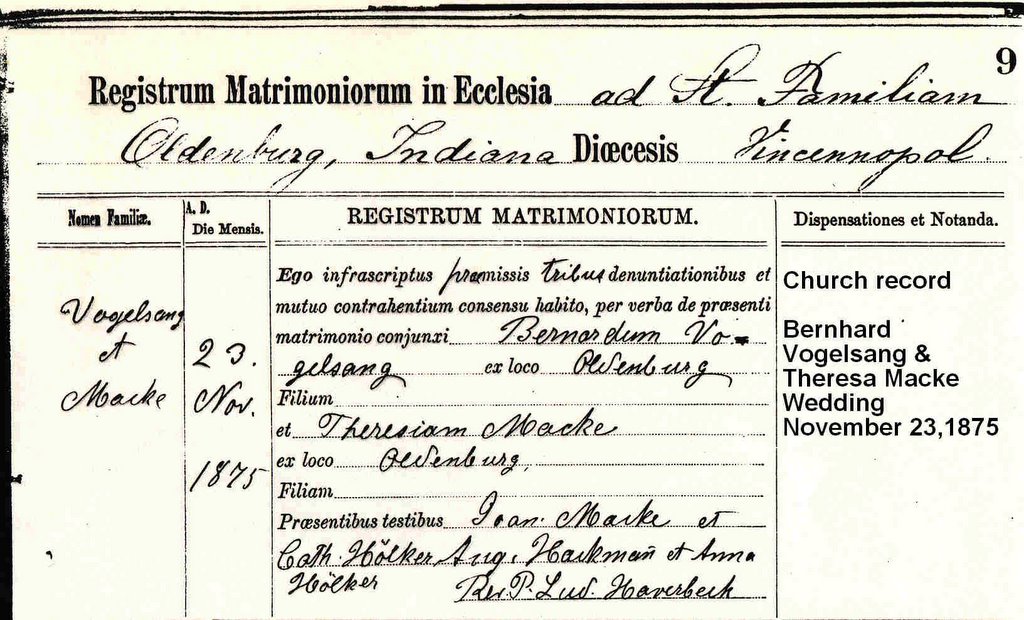 9
Registrum Matrimoniorum in Ecclesia ad St. Familiam
Oldenburg, Indiana Diœcesis Vincennopol.
Nomen Familiæ.
A. D.
Die Mensis.
REGISTRUM MATRIMONIORUM.
Dispensationes et Notanda.
Vogelsang
et
Macke
23.
Nov.
1875
Ego infrascriptus præmissis tribus denuntiationibus et
mutuo contrahentium consensu habito, per verba de præsenti
matrimonio conjunxi Bernardum Vo-
gelsang ex loco Oldenburg
Filium
et Theresiam Macke
ex loco Oldenburg,
Filiam
Præsentibus testibus Joan. Macke et
Cath. Hölker Aug. Hackmañ et Anna
Hölker Rev. P. Lud. Haverbeck
Church record
Bernhard
Vogelsang &
Theresa Macke
Wedding
November 23,1875